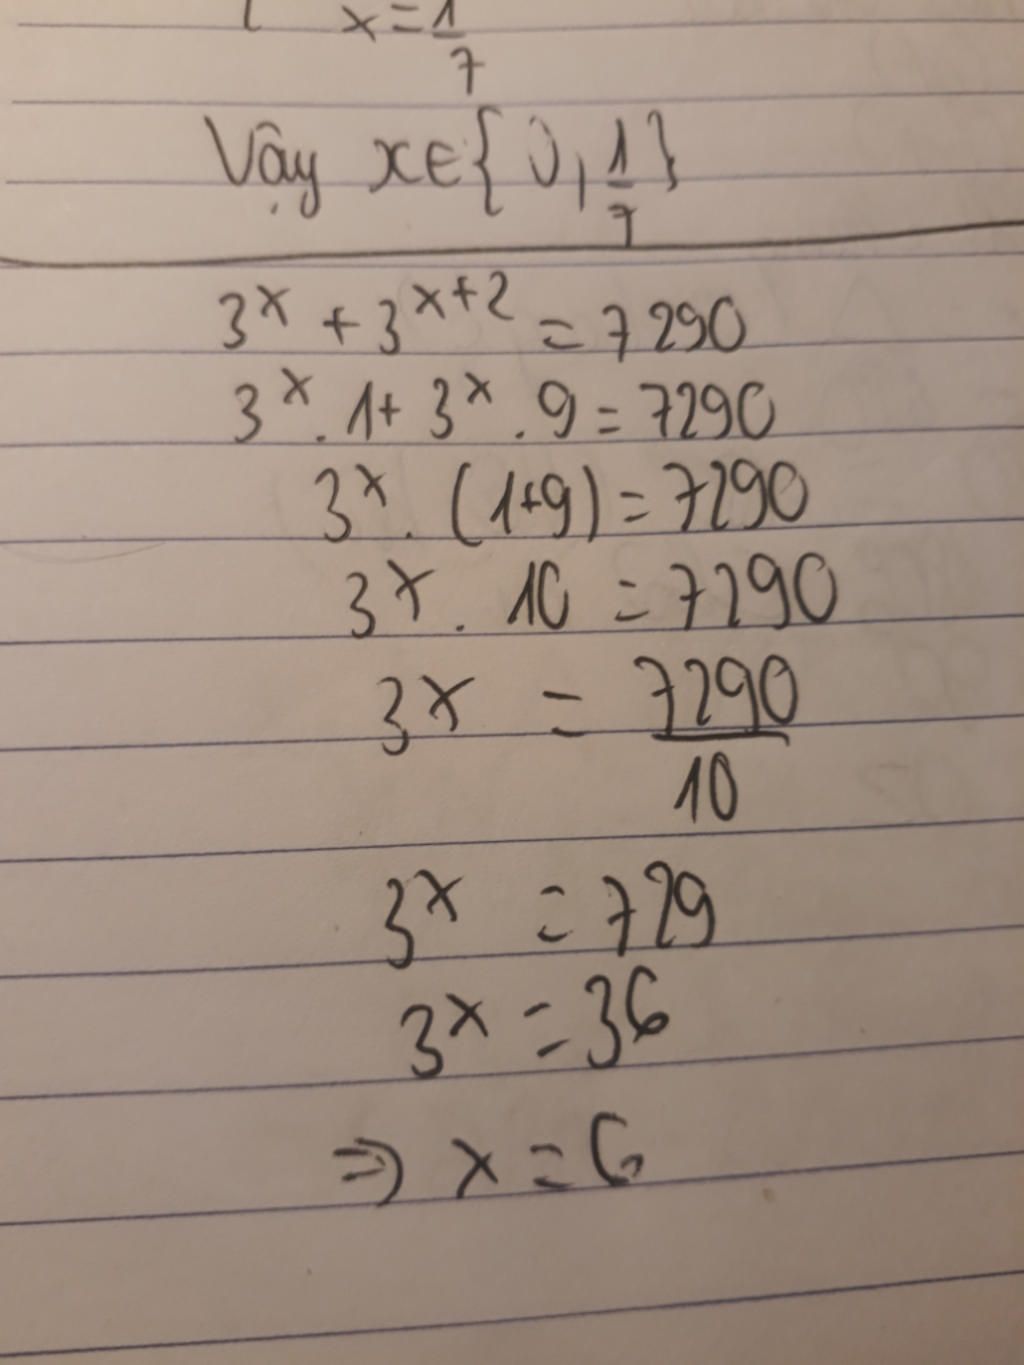 x = 1/7
Vậy x ∈ { 0, 1/7 }
3^x + 3^(x+2) = 7290
3^x . 1 + 3^x . 9 = 7290
3^x . (1+9) = 7290
3^x . 10 = 7290
3^x = 7290/10
3^x = 729
3^x = 3^6
⇒ x = 6